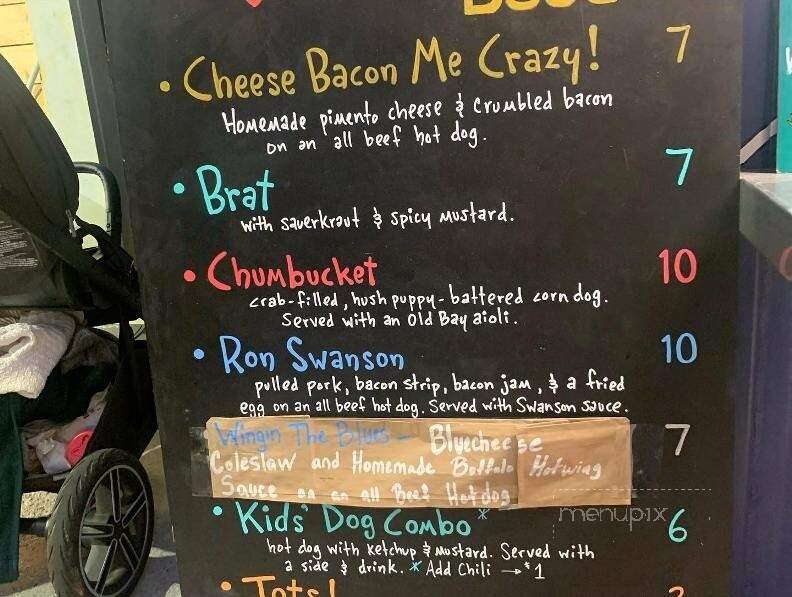 • Cheese Bacon Me Crazy! 7
Homemade pimento cheese & crumbled bacon
on an all beef hot dog.
• Brat 7
with sauerkraut & spicy mustard.
• Chumbucket 10
crab-filled, hush puppy-battered corn dog.
Served with an Old Bay aioli.
• Ron Swanson 10
pulled pork, bacon strip, bacon jam, & a fried
egg on an all beef hot dog. Served with Swanson sauce.
Wingin The Blues - Bluecheese 7
Coleslaw and Homemade Buffalo Hotwing
Sauce on an all Beef Hotdog
• Kids' Dog Combo* 6
hot dog with ketchup & mustard. Served with
a side & drink. * Add Chili → $1
• Tots!
menupix